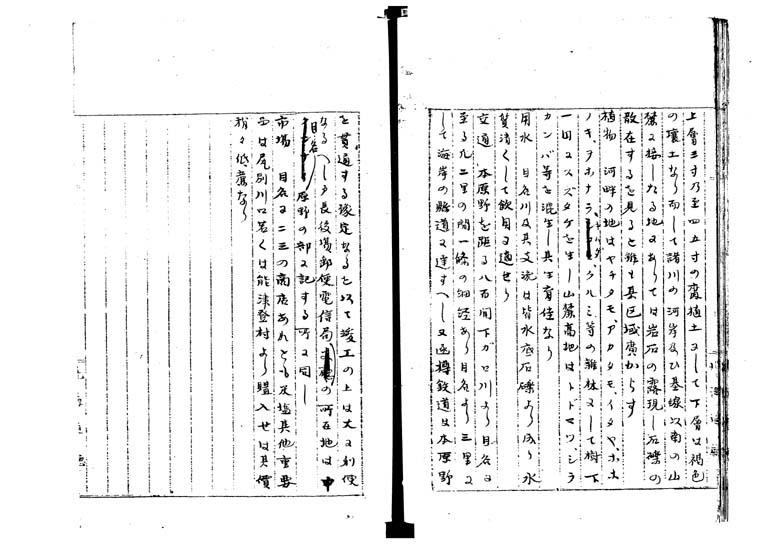 上層三寸乃至四五寸の腐植土にして下層は褐色
の壌土なり而して諸川の河岸及ひ基線以南の山
麓に接したる地にありては岩石の露現し石礫の
散在するを見ると雖も其区域廣からす
植物 河畔の地はヤチダモ、アカダモ、イタヤ、ホホ
ノキ、ヲホナラ クルミ等の雑林にして樹下
一団にスズタケを生し山麓高地はトドマツ、シラ
カンバ等を混生し其生育佳なり
用水 目名川及其支流は皆水底石礫より成り水
質清くして飲用に適せり
交通 本原野を距る八百間下ガロ川より目名に
至る凡二里の間一條の細径あり目名より三里に
して海岸の縣道に達すへし又函樽鉄道は本原野
を貫通する豫定なるを以て竣工の上は大に利便
なるへし戸長役場郵便電信局の所在地は
目名原野の部に記する所に同し
市場 目名に二三の商店あれとも及塩其他重要
品は尻別川口若くは能津登村より購入せは其價
稍々低廉なり